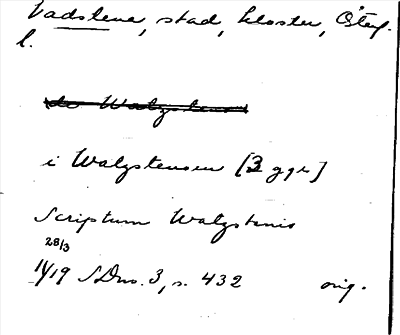 Vadstena, stad, kloster, Östg.
l.
de Watzstena
i Watzstenom [3 ggr]
Scriptum Watzstenis
28/3
1419 SDns. 3, s. 432 orig.